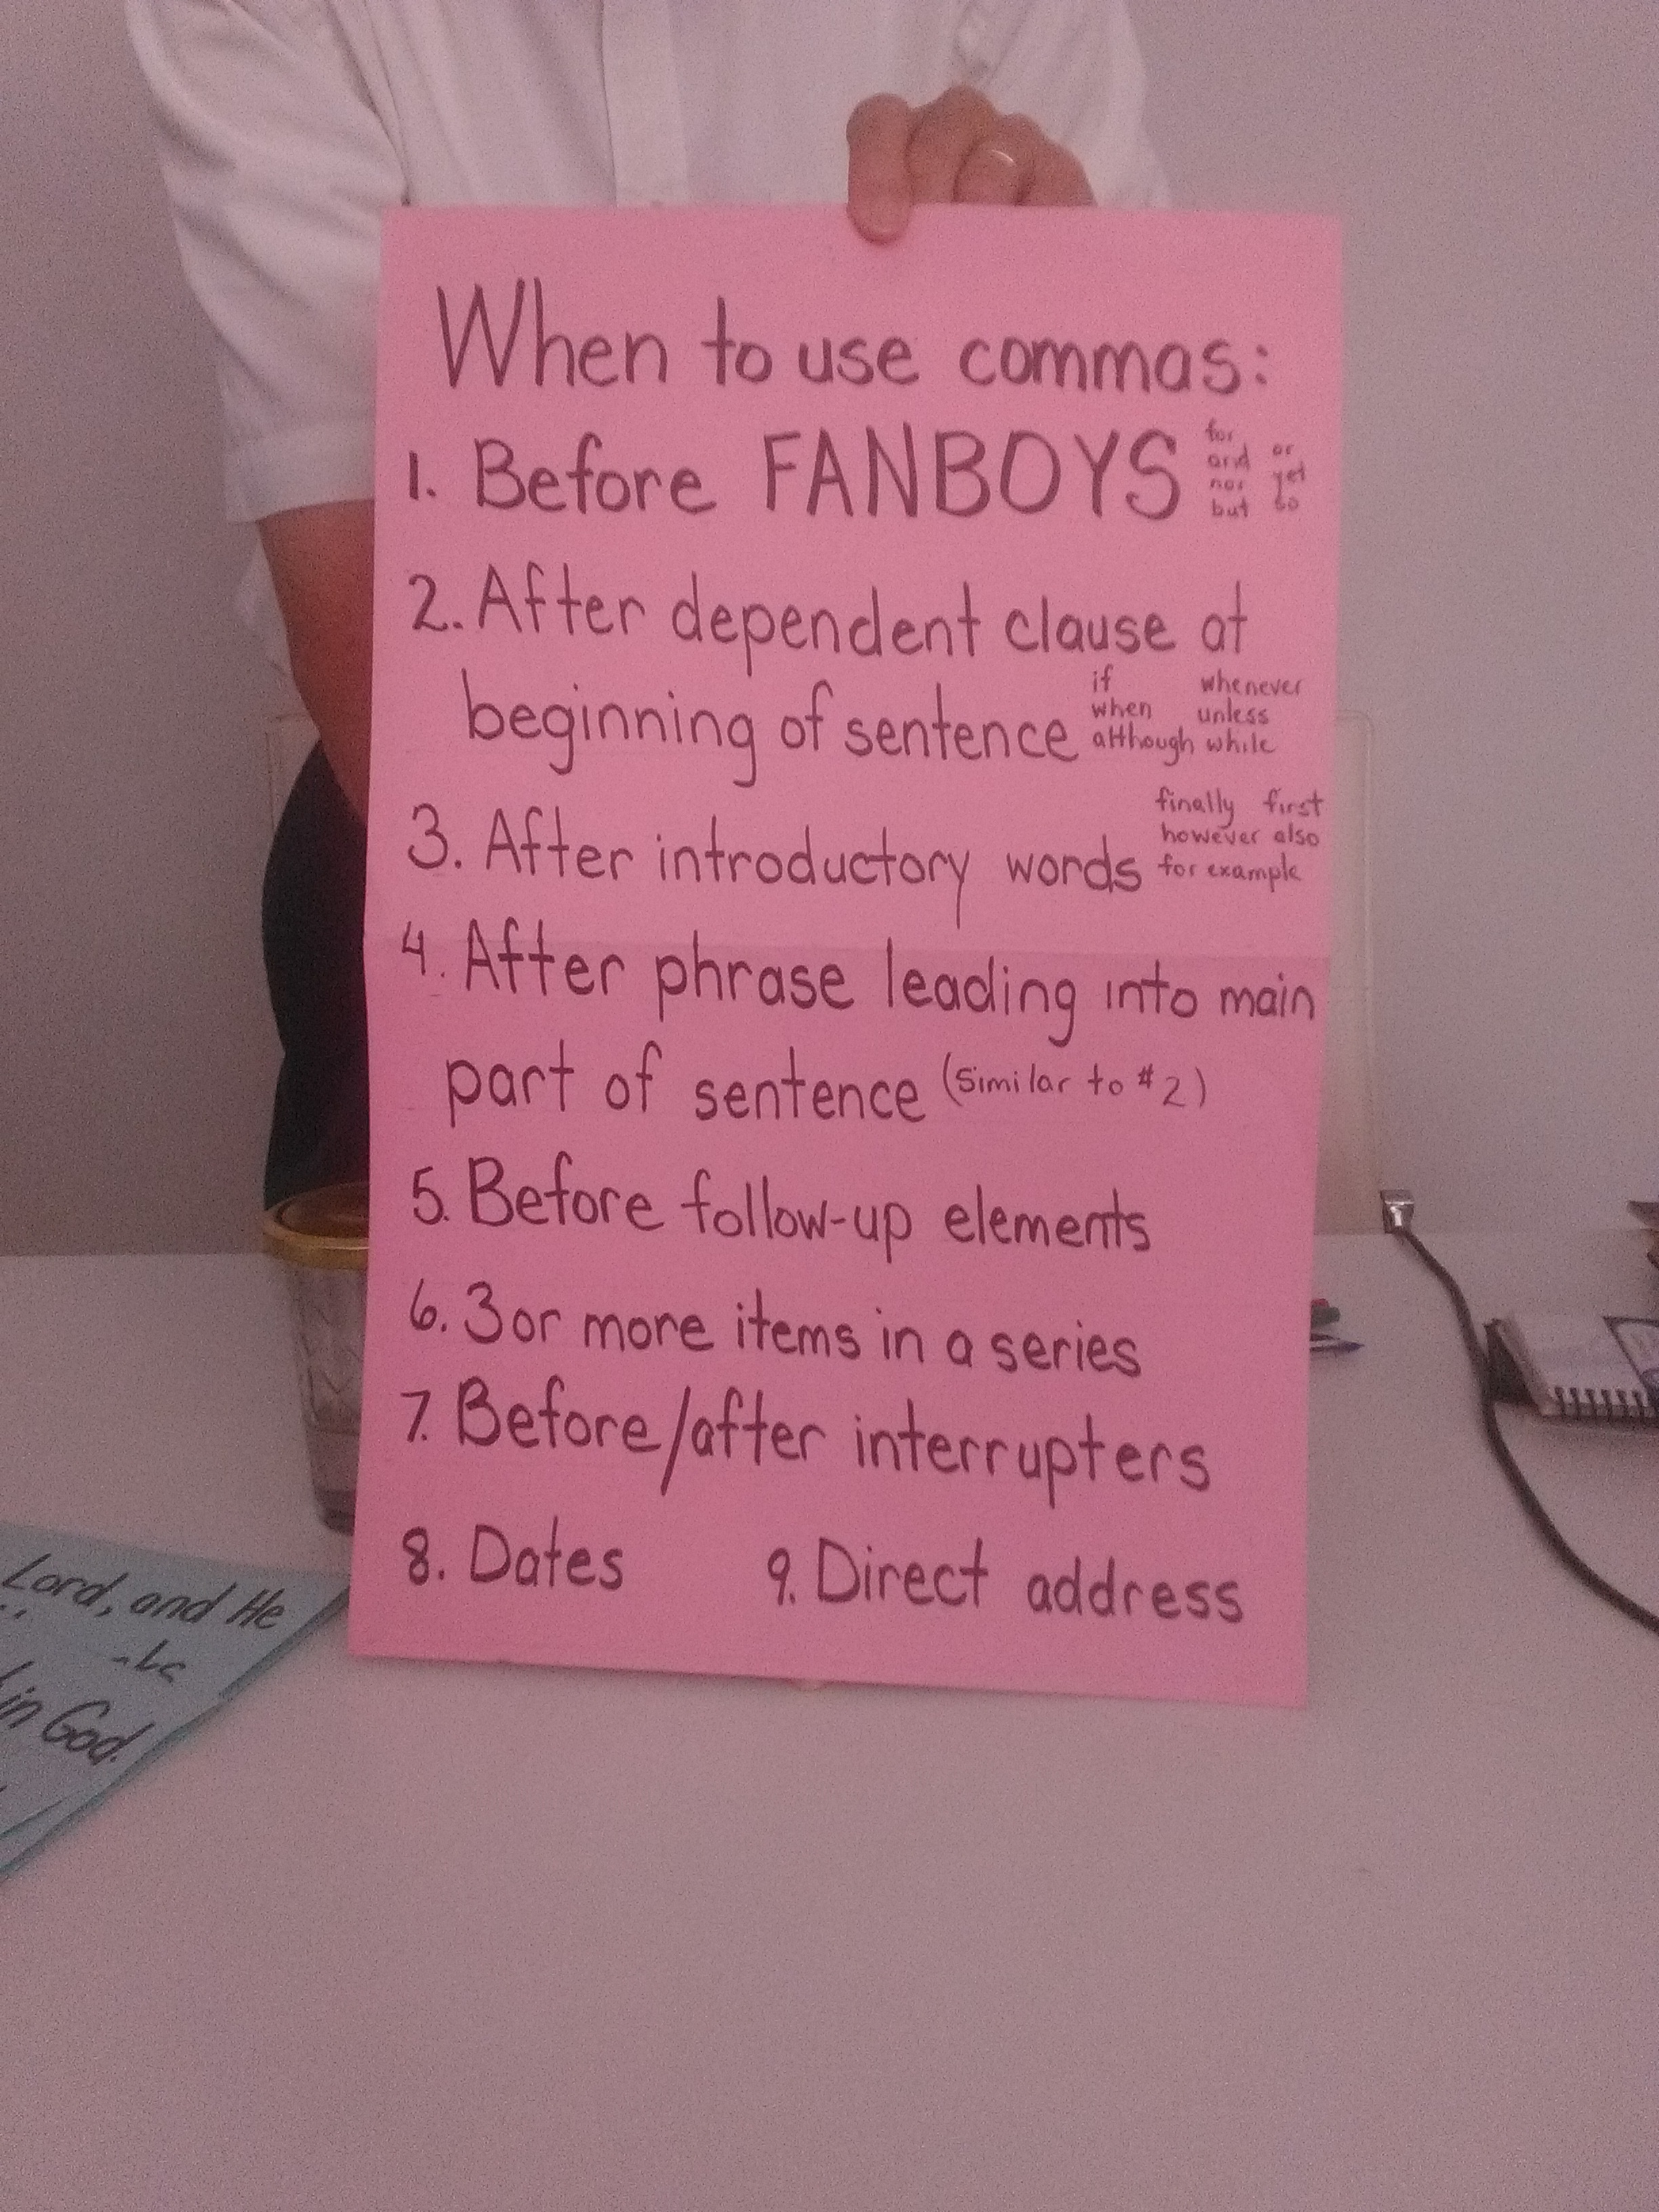 When to use commas:
1. Before FANBOYS
for
and or
nor yet
but so
2. After dependent clause at
beginning of sentence
if whenever
when unless
although while
3. After introductory words
finally first
however also
for example
4. After phrase leading into main
part of sentence (Similar to #2)
5. Before follow-up elements
6. 3 or more items in a series
7. Before/after interrupters
8. Dates 9. Direct address
Lord, and He
in God.